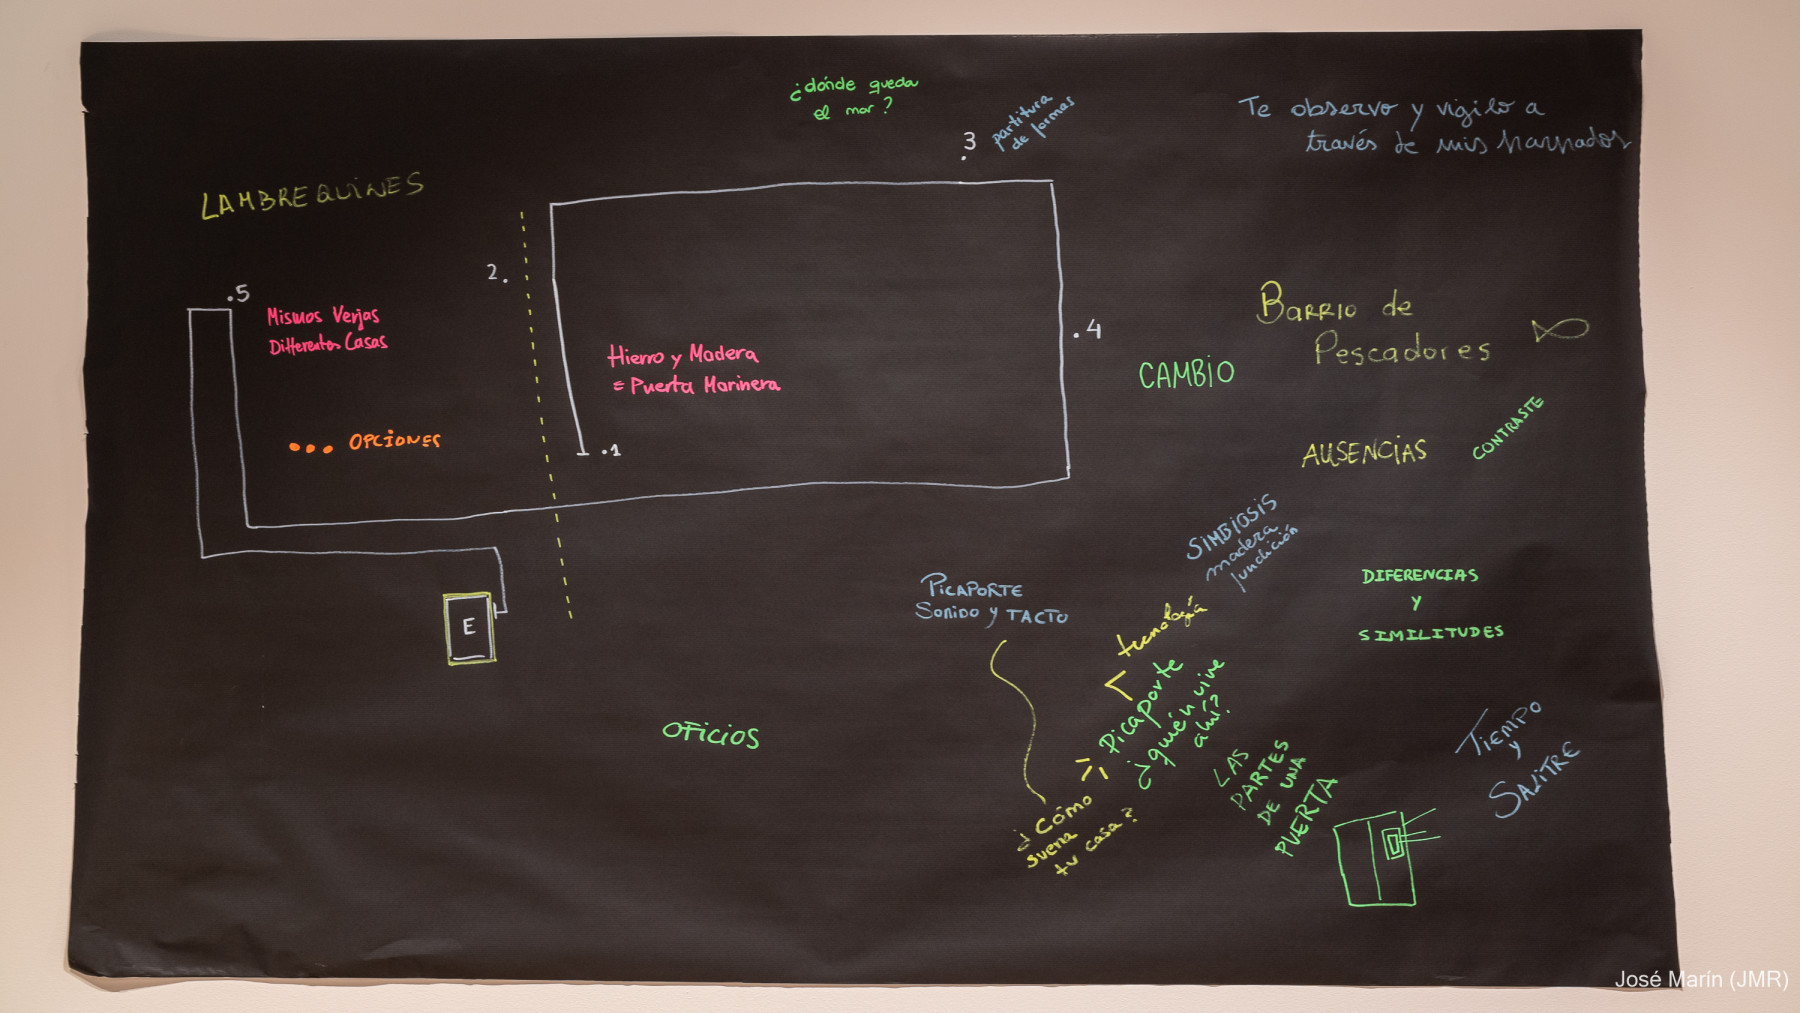 ¿dónde queda
el mar?
.3
partitura
de formas
Te observo y vigilo a
través de mis
LAMBREQUINES
2.
.5
Mismos Verjas
Diferentes Casas
Hierro y Madera
= Puerta Marinera
.4
CAMBIO
BARRIO de
Pescadores
... OPCIONES
.1
AUSENCIAS
CONTRASTE
SIMBIOSIS
madera
fundición
PICAPORTE
SONIDO y TACTO
E
tecnología
DIFERENCIAS
Y
SIMILITUDES
Picaporte
¿quién vive
ahí?
OFICIOS
LAS
PARTES
DE UNA
PUERTA
TIEMPO
y
SALITRE
¿Cómo
suena
tu casa?
José Marín (JMR)